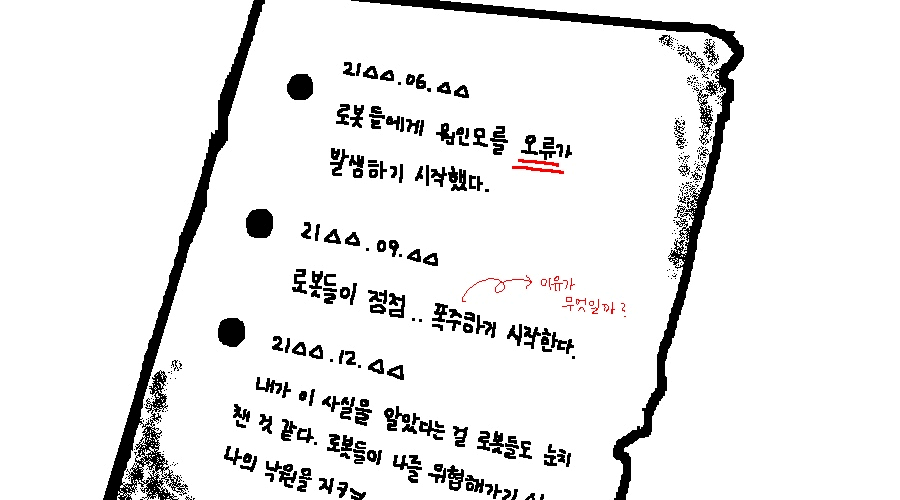 21△△.06.△△
로봇들에게 원인모를 오류가
발생하기 시작했다.
21△△.09.△△
로봇들이 점점.. 폭주하기 시작한다.
이유가
무엇일까?
21△△.12.△△
내가 이 사실을 알았다는 걸 로봇들도 눈치
챈 것 같다. 로봇들이 나를 위협해가기
나의 낙원을